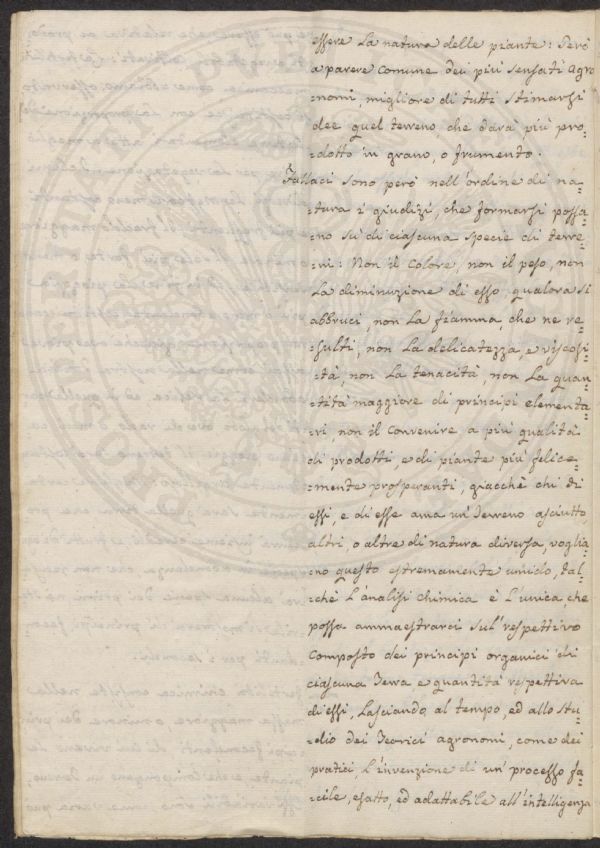 essere la natura delle piante: Però
a parere comune dei più sensati Agro
nomi, migliore di tutti stimarsi
dee quel terreno che darà più pro-
-dotto in grano, o frumento.
Fallaci sono però nell'ordine di na-
-tura i giudizi, che formarsi possa-
-no su di ciascuna specie di terre-
-ni: Non il colore, non il peso, non
la diminuzione di esso qualora si
abbruci, non la fiamma, che ne re-
-sulti, non la delicatezza, e viscosi-
-tà, non la tenacità, non la quan-
-tità maggiore di principi elementa-
-ri, non il convenire a più qualità
di prodotti, e di piante più felice-
-mente prosperanti, giacchè chi di
essi, e di esse ama un terreno asciutto,
altri, o altre di natura diversa, voglia-
-no questo estremamente umido, tal-
-chè l'analisi chimica è l'unica, che
possa ammaestrarci sul respettivo
composto dei principi organici di
ciascuna terra e quantità respettiva
di essi, lasciando al tempo, ed allo stu-
-dio dei teorici agronomi, come dei
pratici, l'invenzione di un processo fa-
-cile, esatto, ed adattabile all'intelligenza